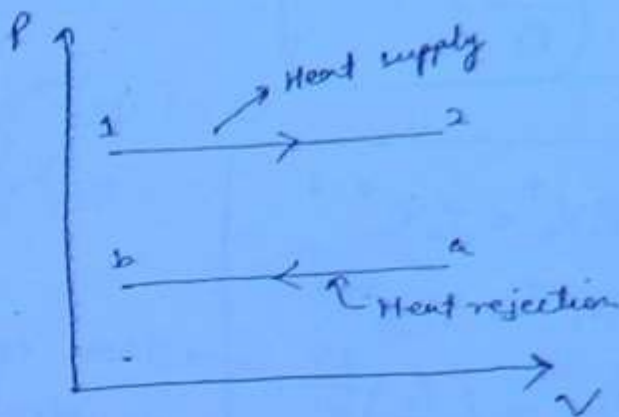 P
Heat supply
1
2
b
a
Heat rejection
V